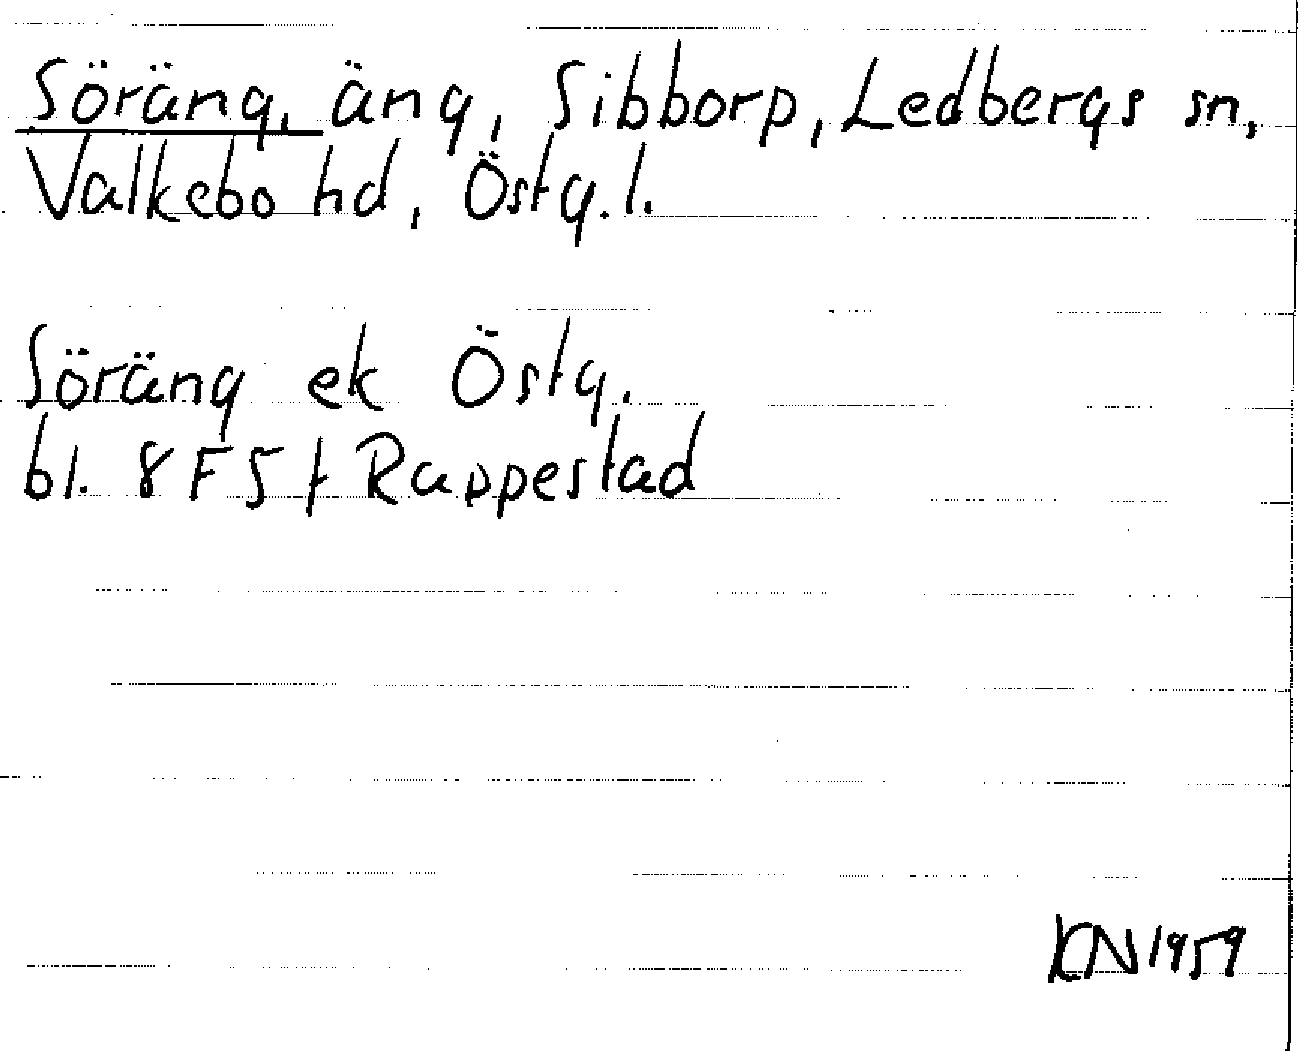 Söräng, äng, Sibborp, Ledbergs sn,
Valkebo hd, Östg.l.
Söräng ek Östg.
bl. 8 F 5 f Rappestad
KN 1959